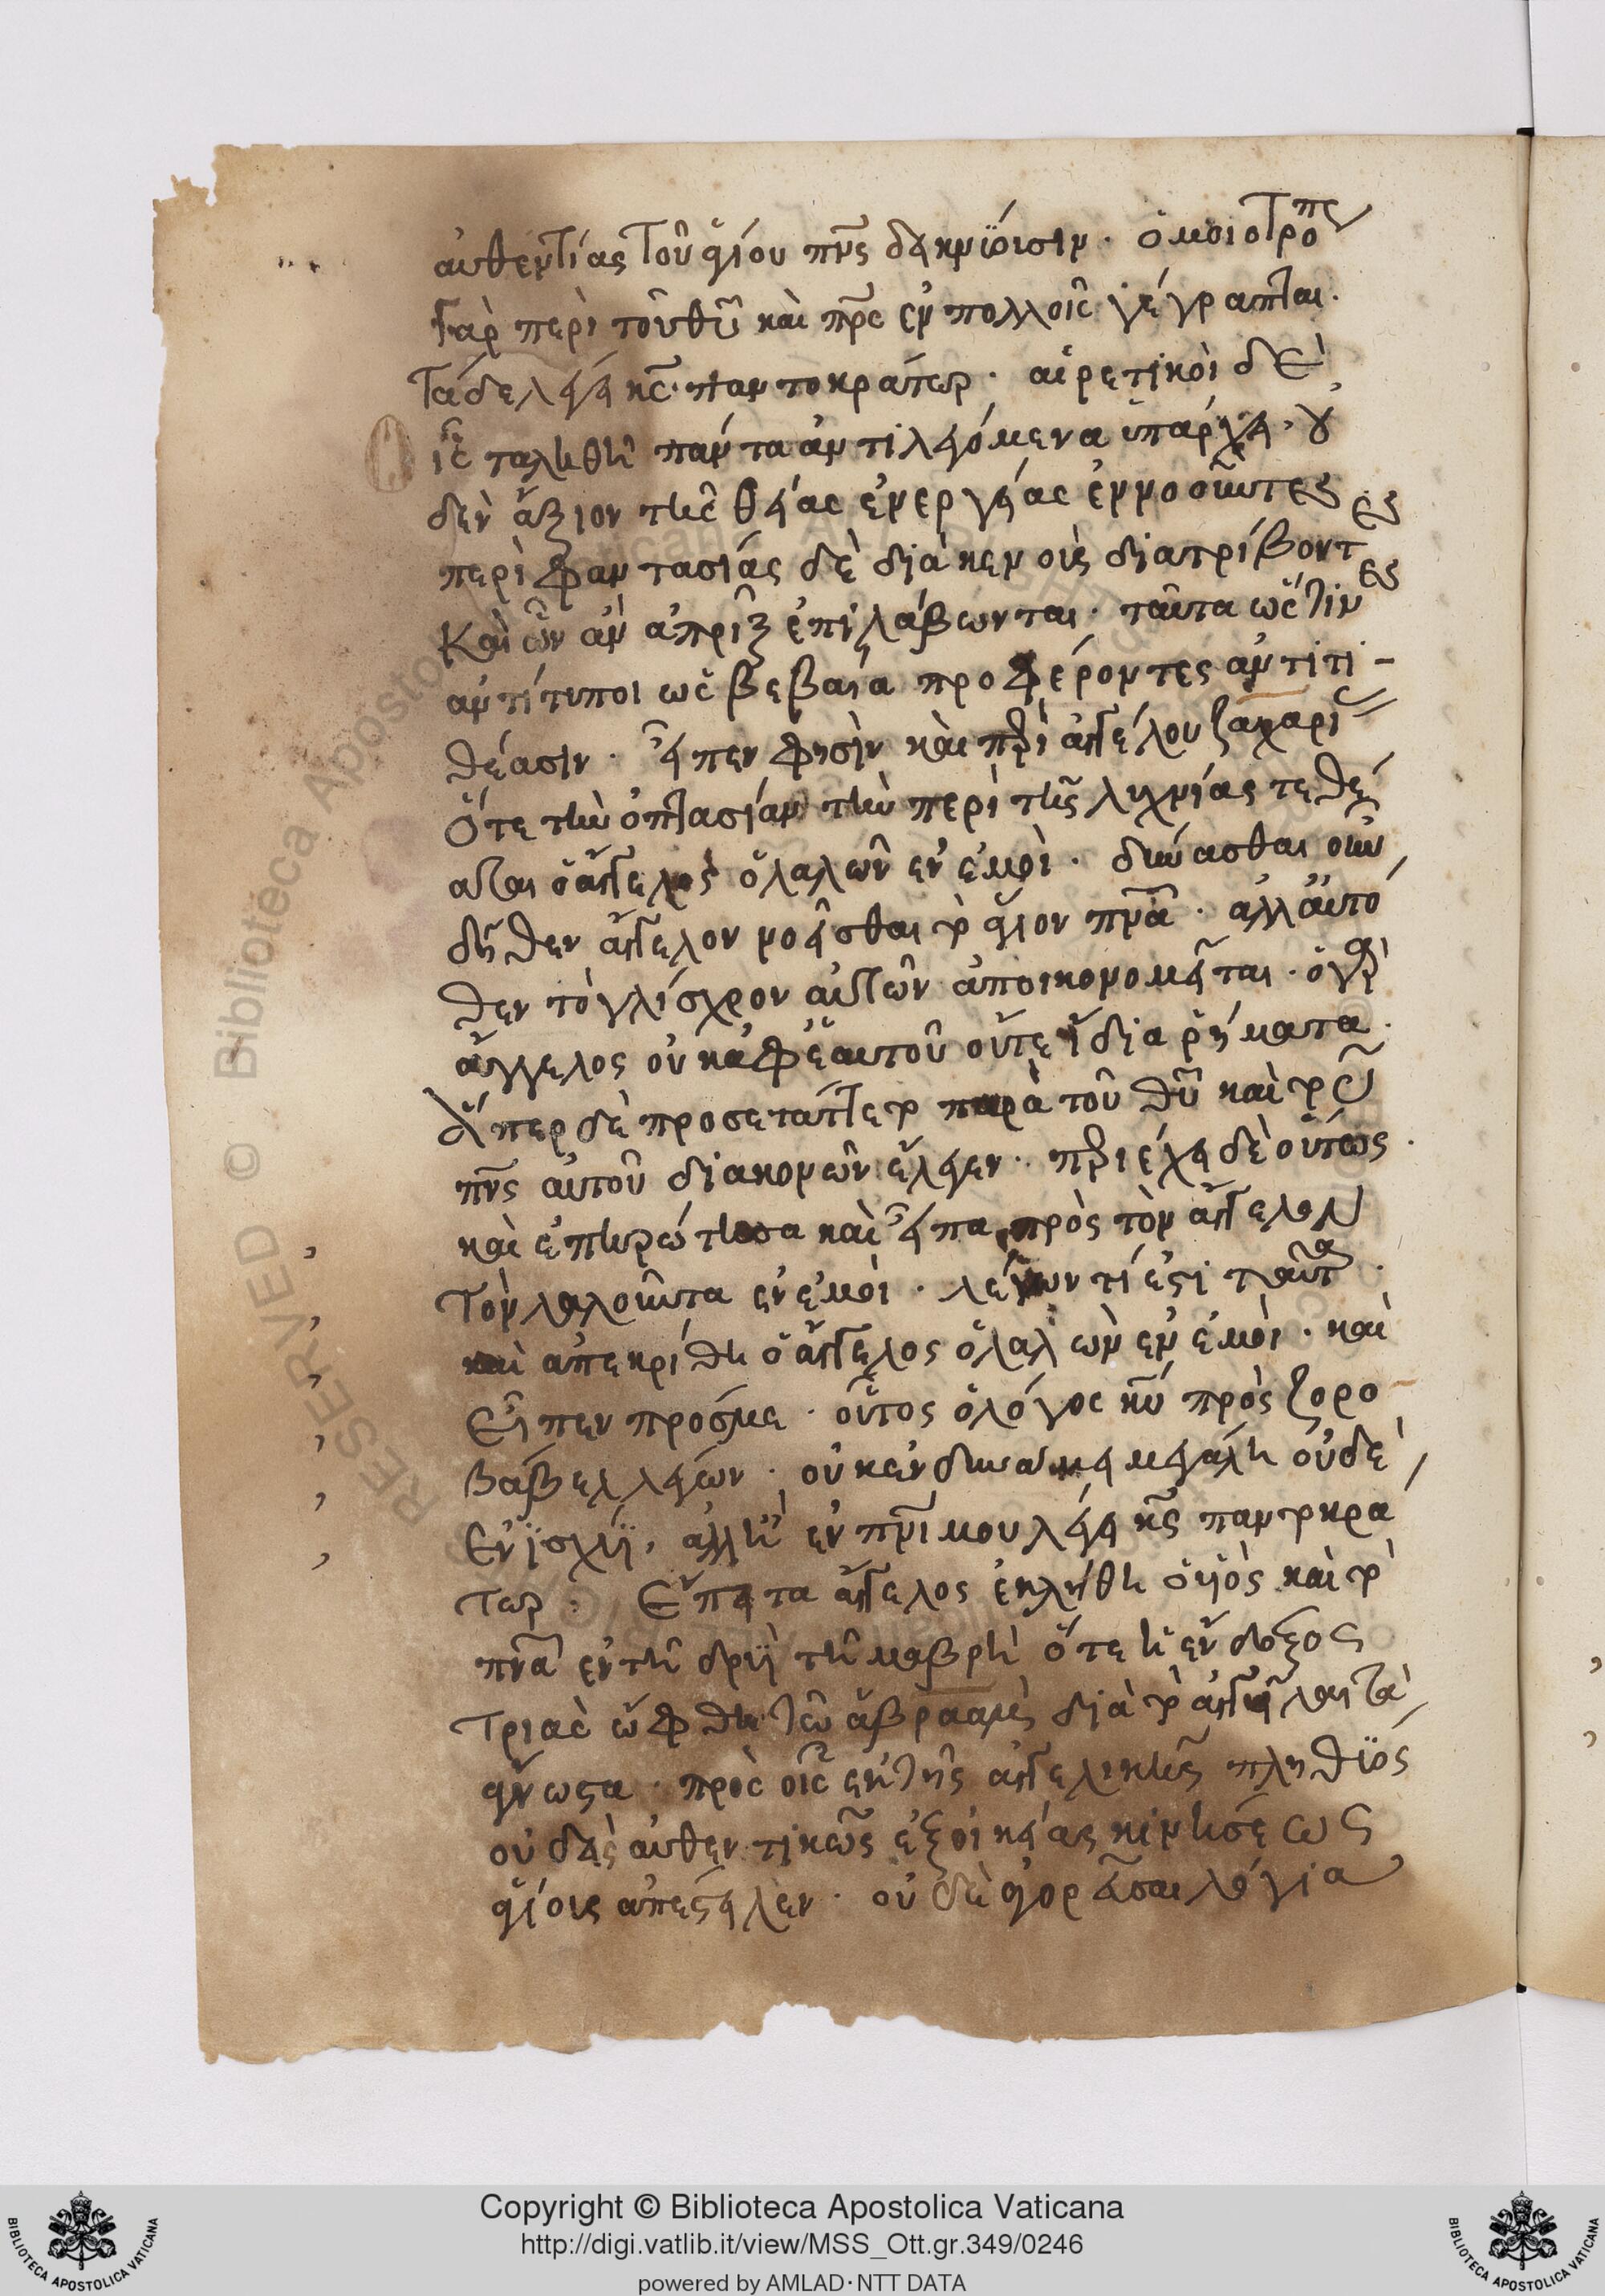 αὐθεντίας τοῦ ἁγίου πνς δεικνύουσιν · ὁμοιοτρόπως
γὰρ περὶ τοῦ θῦ καὶ πρς ἐν πολλοῖς γέγραπται ·
τάδε λέγει κς παντοκράτωρ · αἱρετικοὶ δὲ
οἷς ταληθῆ πάντα ἀντιλεγόμενα ὑπάρχει, οὐ
δὲν ἄξιον τῆς θείας ἐνεργείας ἐννοοῦντες
περὶ φαντασίας δὲ διακένους διατρίβοντες
καὶ ὧν ἂν ἀπρὶξ ἐπιλάβωνται · ταῦτα ὥς τινες
ἀντίτυποι ὡς βεβαία προφέροντες ἀντιτι-
θέασιν · εἶπεν φησὶν καὶ περὶ ἀγγέλου ζαχαρίας
ὅτε τὴν ὀπτασίαν τὴν περὶ τῆς λυχνίας τεθέ
αται ὁ ἄγγελος ὁ λαλῶν ἐν ἐμοί · δύνασθαι οὖν
δῆθεν ἄγγελον νοεῖσθαι τὸ ἅγιον πνα · ἀλλ' αὐτό
θεν τὸ γλίσχρον αὐτῶν ἀποικονομεῖται · ὁ γὰρ
ἄγγελος οὐκ ἀφ' ἑαυτοῦ οὔτε ἴδια ῥήματα ·
ἅπερ δὲ προσετάττετο παρὰ τοῦ θῦ καὶ τοῦ
πνς αὐτοῦ διακονῶν ἔλεγεν · περιέχει δὲ οὕτως ·
καὶ ἐπηρώτησα καὶ εἶπα πρὸς τὸν ἄγγελον
τὸν λαλοῦντα ἐν ἐμοί · λέγων τί ἐστι ταῦτα ·
καὶ ἀπεκρίθη ὁ ἄγγελος ὁ λαλῶν ἐν ἐμοί · καὶ
εἶπεν πρός με · οὗτος ὁ λόγος κυ πρὸς ζορο
βάβελ λέγων · οὐκ ἐν δυνάμει μεγάλη οὐδὲ
ἐν ἰσχύϊ, ἀλλ' ἢ ἐν πνι μου λέγει κς παντοκρά
τωρ · Εἶπει τα ἄγγελος ἐκλήθη ὁ υἱὸς καὶ τὸ
πνα ἐν τῆ δρυῒ τῆ μαβρῆ ὅτε ἡ ἔνδοξος
τριὰς ὤφθη τῶ ἀβραάμ διὰ τὸ ἀγγεῖλαι τὰ
ἄγνωστα · πρὸς οἷς ἐκ τῆς ἀγγελικῆς πληθύος
οὐδεὶς αὐθεντικῶς ἐξ οἰκείας κινήσεως
ἁγίοις ἀπέστελεν · οὐδὲ ἀγορεῦσαι λόγια
Copyright © Biblioteca Apostolica Vaticana
http://digi.vatlib.it/view/MSS_Ott.gr.349/0246
powered by AMLAD·NTT DATA